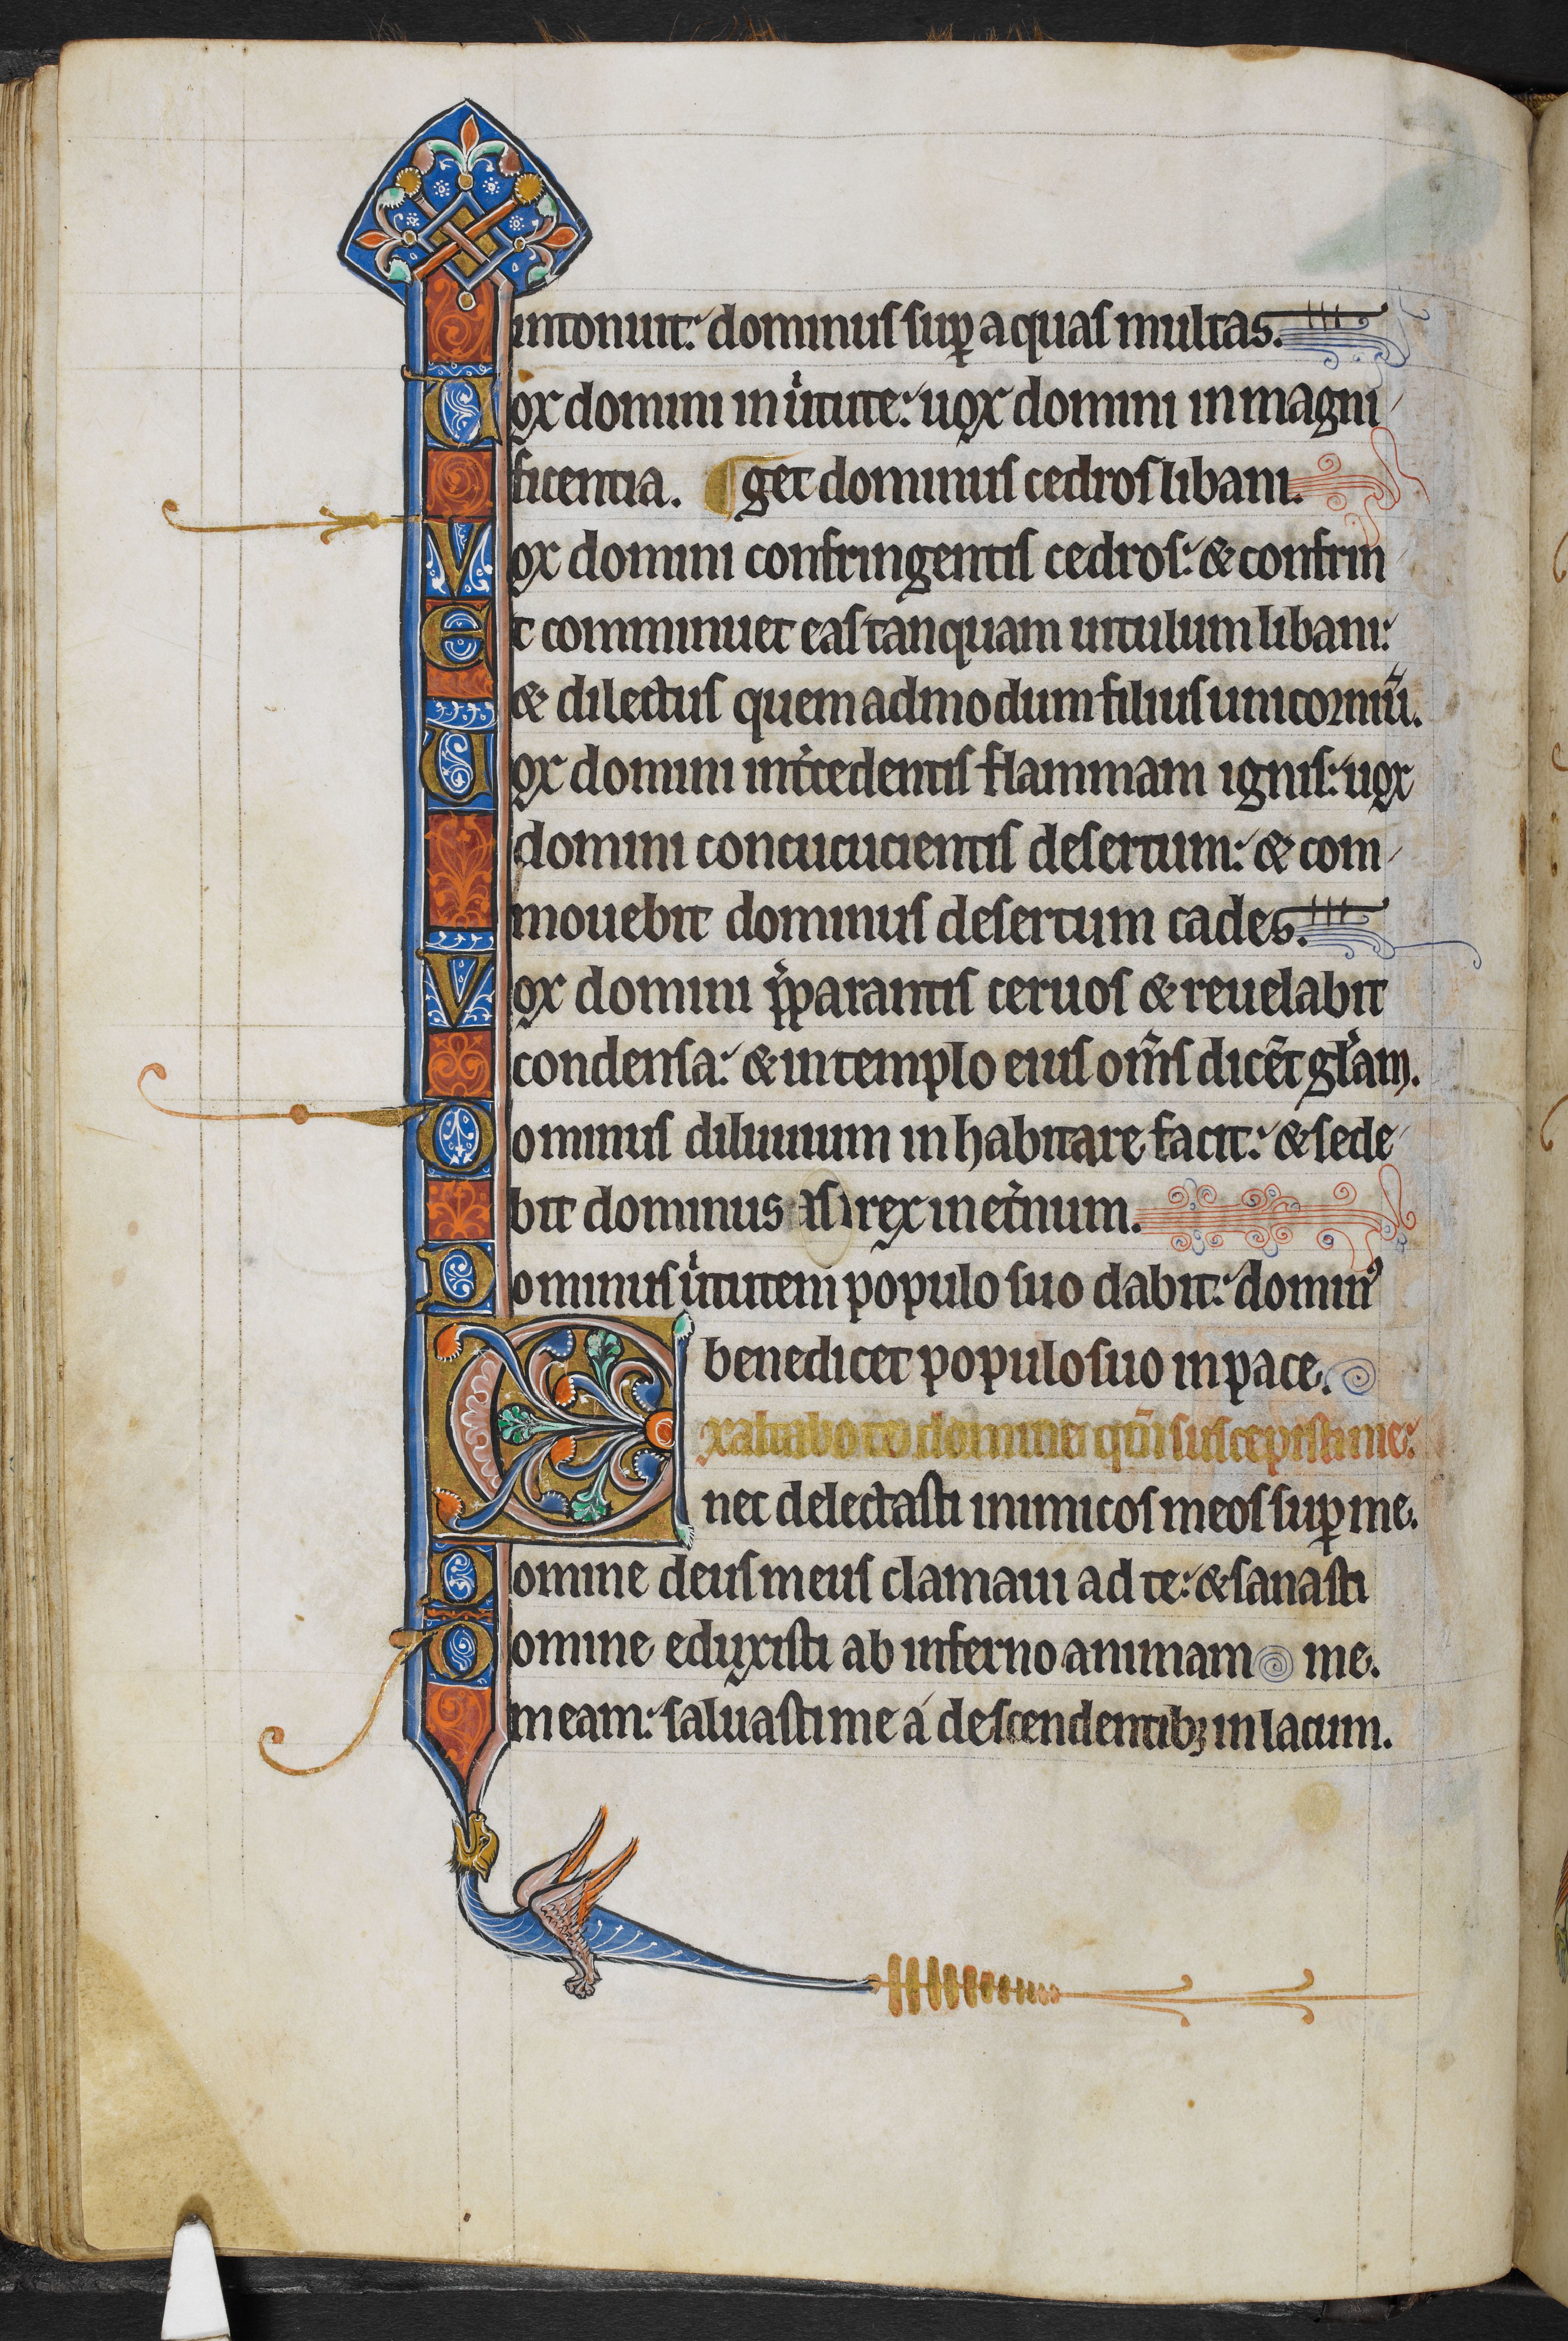 intonuit: dominus suꝑ aquas multas.
Vox domini in uͥtute: uox domini in magni
ficentia. ¶ get dominus cedros libani.
Vox domini confringentis cedros: & confrin
Et comminuet eas tanquam uitulum libani:
& dilectus quemadmodum filius unicorniū.
Vox domini intͥcedentis flammam ignis: uox
domini concucucientis desertum: & com
mouebit dominus desertum cades.
Vox domini p̄parantis ceruos & reuelabit
condensa: & in templo eius om̄s dicēt gl̄am.
Dominus diluuium inhabitare facit: & sede
bit dominus rex in et̄num.
Dominus uͥtutem populo suo dabit: dominꝰ
benedicet populo suo in pace.
Exaltabo te domine qm̄ suscepisti me:
nec delectasti inimicos meos suꝑ me.
Domine deus meus clamaui ad te: & sanasti
Domine eduxisti ab inferno animam me.
meam: saluasti me a descendentibꝫ in lacum.